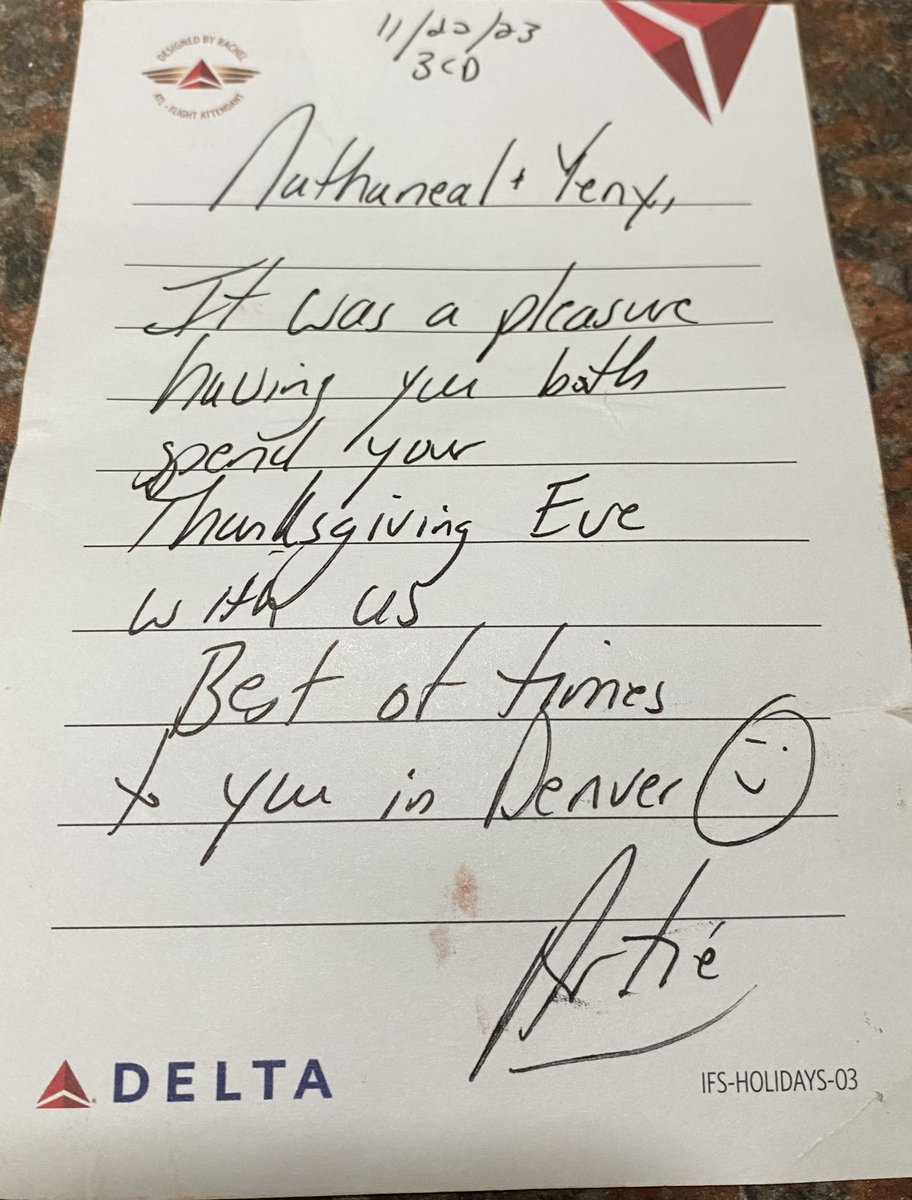 11/22/23
3CD
DESIGNED BY RACHEL
ATL - FLIGHT ATTENDANT
Nathaneal + Yeny,
It was a pleasure
having you both
spend your
Thanksgiving Eve
with us
Best of times
to you in Denver
Artié
DELTA
IFS-HOLIDAYS-03